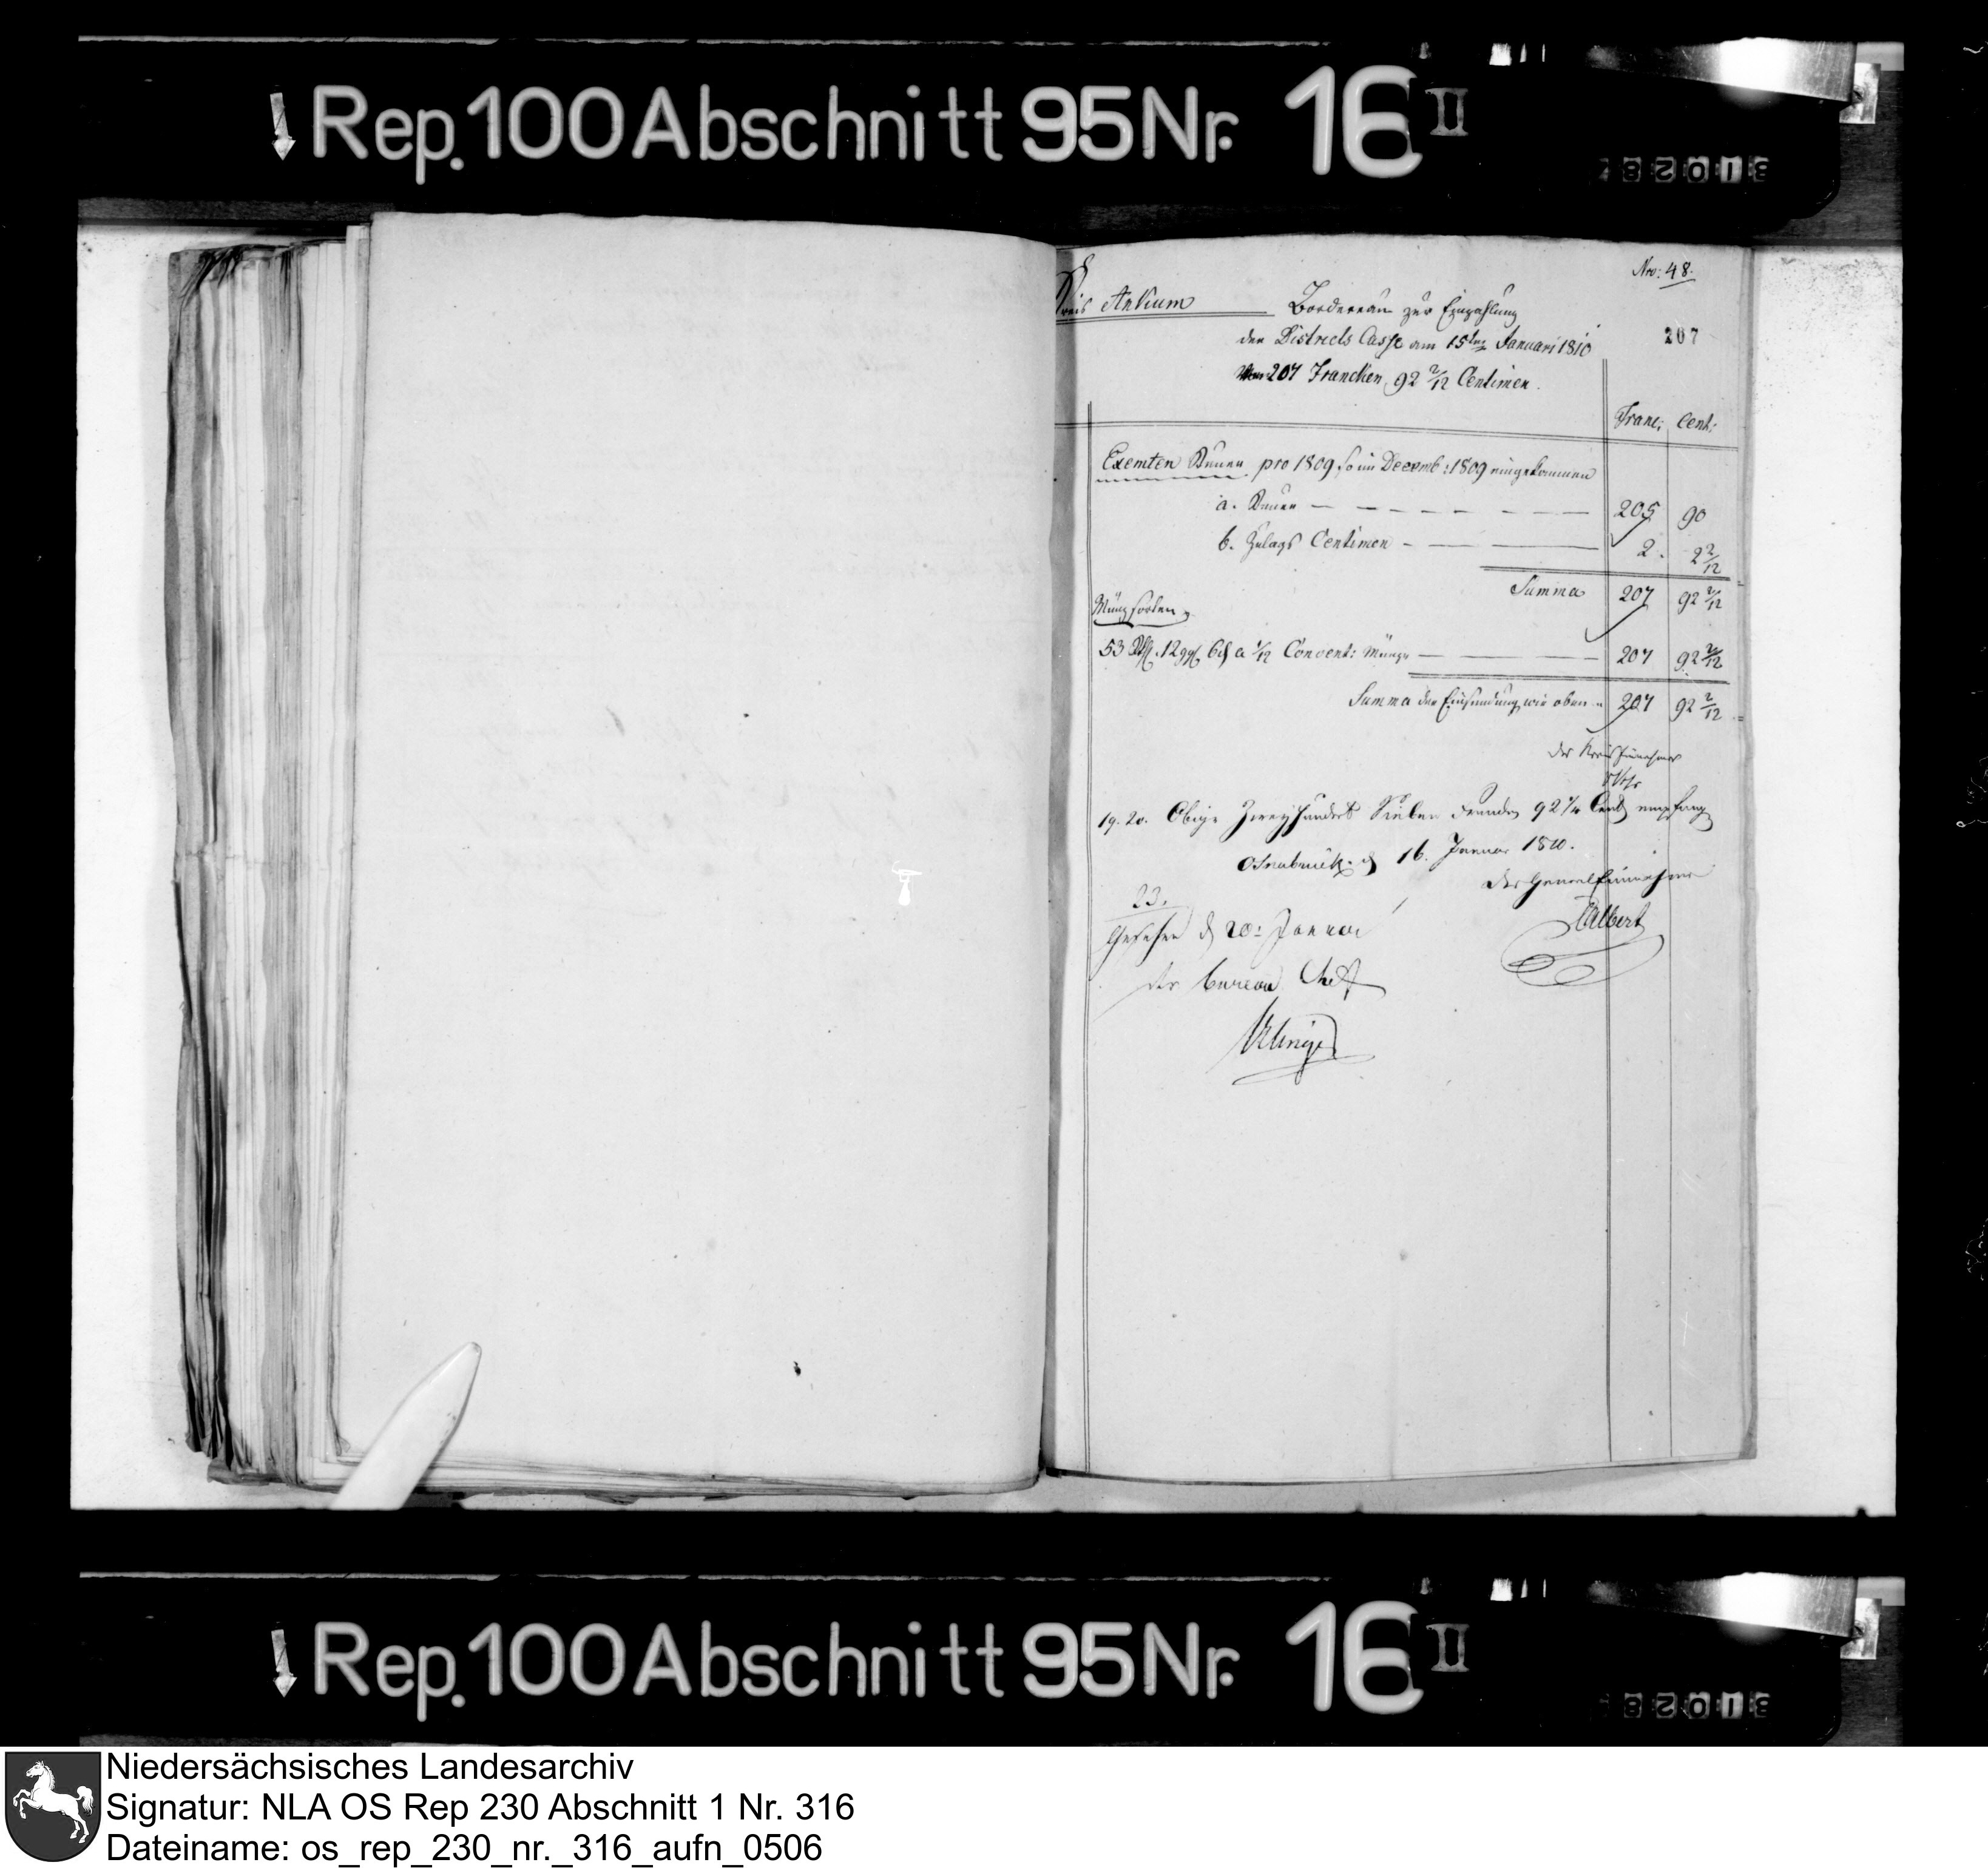 Rep. 100 Abschnitt 95 Nr. 16 II
Nro: 48.
Kreis Ankum
Bordereau zur Einzahlung
207
der Districts Casse am 15ten Januari 1810
von 207 Francken 92 2/12 Centimen.
Franc: Cent:
Exemten Steuer pro 1809 so im Decemb: 1809 eingekommen
a. Steuer 205 90
b. Zulags Centimen 2. 2 2/12
Summa 207 92 2/12
Münzsorten
53 Rthl. 12 ggl 6 d a 1/12 Convent: Münze 207 92 2/12
Summa der Einsendung wie oben 207 92 2/12
der Kreis Einnehmer
19. 20. Obige Zweyhundert Sieben Franken 92 Cent empfangen
Osnabrück d 16. Januar 1810.
der General Einnehmer
Albert
23.
Gesehen d 20: Januar
der bureau Chef
Rep. 100 Abschnitt 95 Nr. 16 II
Niedersächsisches Landesarchiv
Signatur: NLA OS Rep 230 Abschnitt 1 Nr. 316
Dateiname: os_rep_230_nr._316_aufn_0506